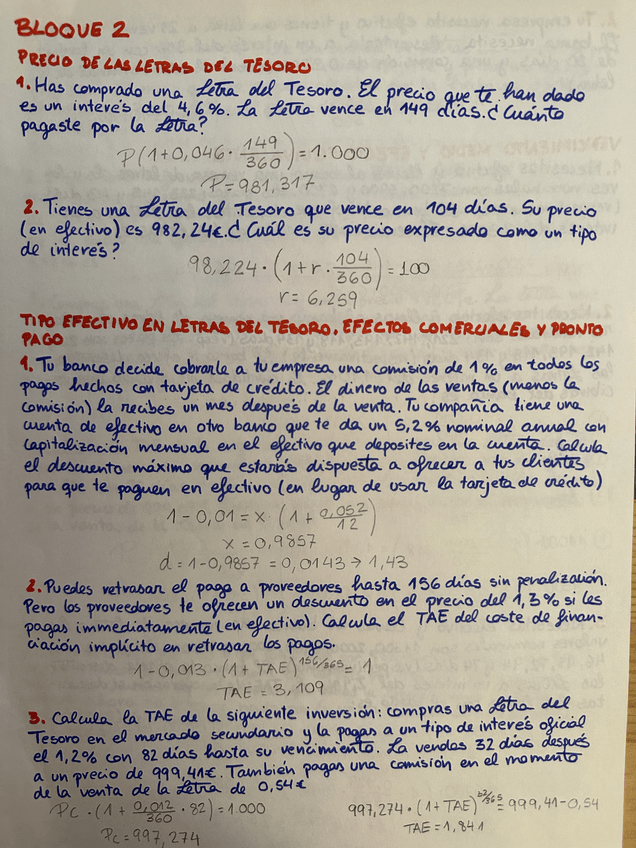 BLOQUE 2
PRECIO DE LAS LETRAS DEL TESORO
1. Has comprado una Letra del Tesoro. El precio que te han dado
es un interés del 4,6%. La Letra vence en 149 días. ¿Cuánto
pagaste por la Letra?
P(1+0,046 · 149/360) = 1.000
P = 981,317
2. Tienes una Letra del Tesoro que vence en 104 días. Su precio
(en efectivo) es 982,24€. ¿Cuál es su precio expresado como un tipo
de interés?
98,224 · (1 + r · 104/360) = 100
r = 6,259
TIPO EFECTIVO EN LETRAS DEL TESORO, EFECTOS COMERCIALES Y PRONTO
PAGO
1. Tu banco decide cobrarle a tu empresa una comisión de 1% en todos los
pagos hechos con tarjeta de crédito. El dinero de las ventas (menos la
comisión) la recibes un mes después de la venta. Tu compañía tiene una
cuenta de efectivo en otro banco que te da un 5,2% nominal anual con
capitalización mensual en el efectivo que deposites en la cuenta. Calcula
el descuento máximo que estarás dispuesta a ofrecer a tus clientes
para que te paguen en efectivo (en lugar de usar la tarjeta de crédito)
1 - 0,01 = x (1 + 0,052/12)
x = 0,9857
d = 1 - 0,9857 = 0,0143 → 1,43
2. Puedes retrasar el pago a proveedores hasta 156 días sin penalización.
Pero los proveedores te ofrecen un descuento en el precio del 1,3% si les
pagas immediatamente (en efectivo). Calcula el TAE del coste de finan-
ciación implícito en retrasar los pagos.
1 - 0,013 · (1 + TAE)^156/365 = 1
TAE = 3,109
3. Calcula la TAE de la siguiente inversión: compras una Letra del
Tesoro en el mercado secundario y la pagas a un tipo de interés oficial
el 1,2% con 82 días hasta su vencimiento. La vendes 32 días después
a un precio de 999,41€. También pagas una comisión en el momento
de la venta de la Letra de 0,54€
Pc · (1 + 0,012/360 · 82) = 1.000
Pc = 997,274
997,274 · (1 + TAE)^32/365 = 999,41 - 0,54
TAE = 1,841